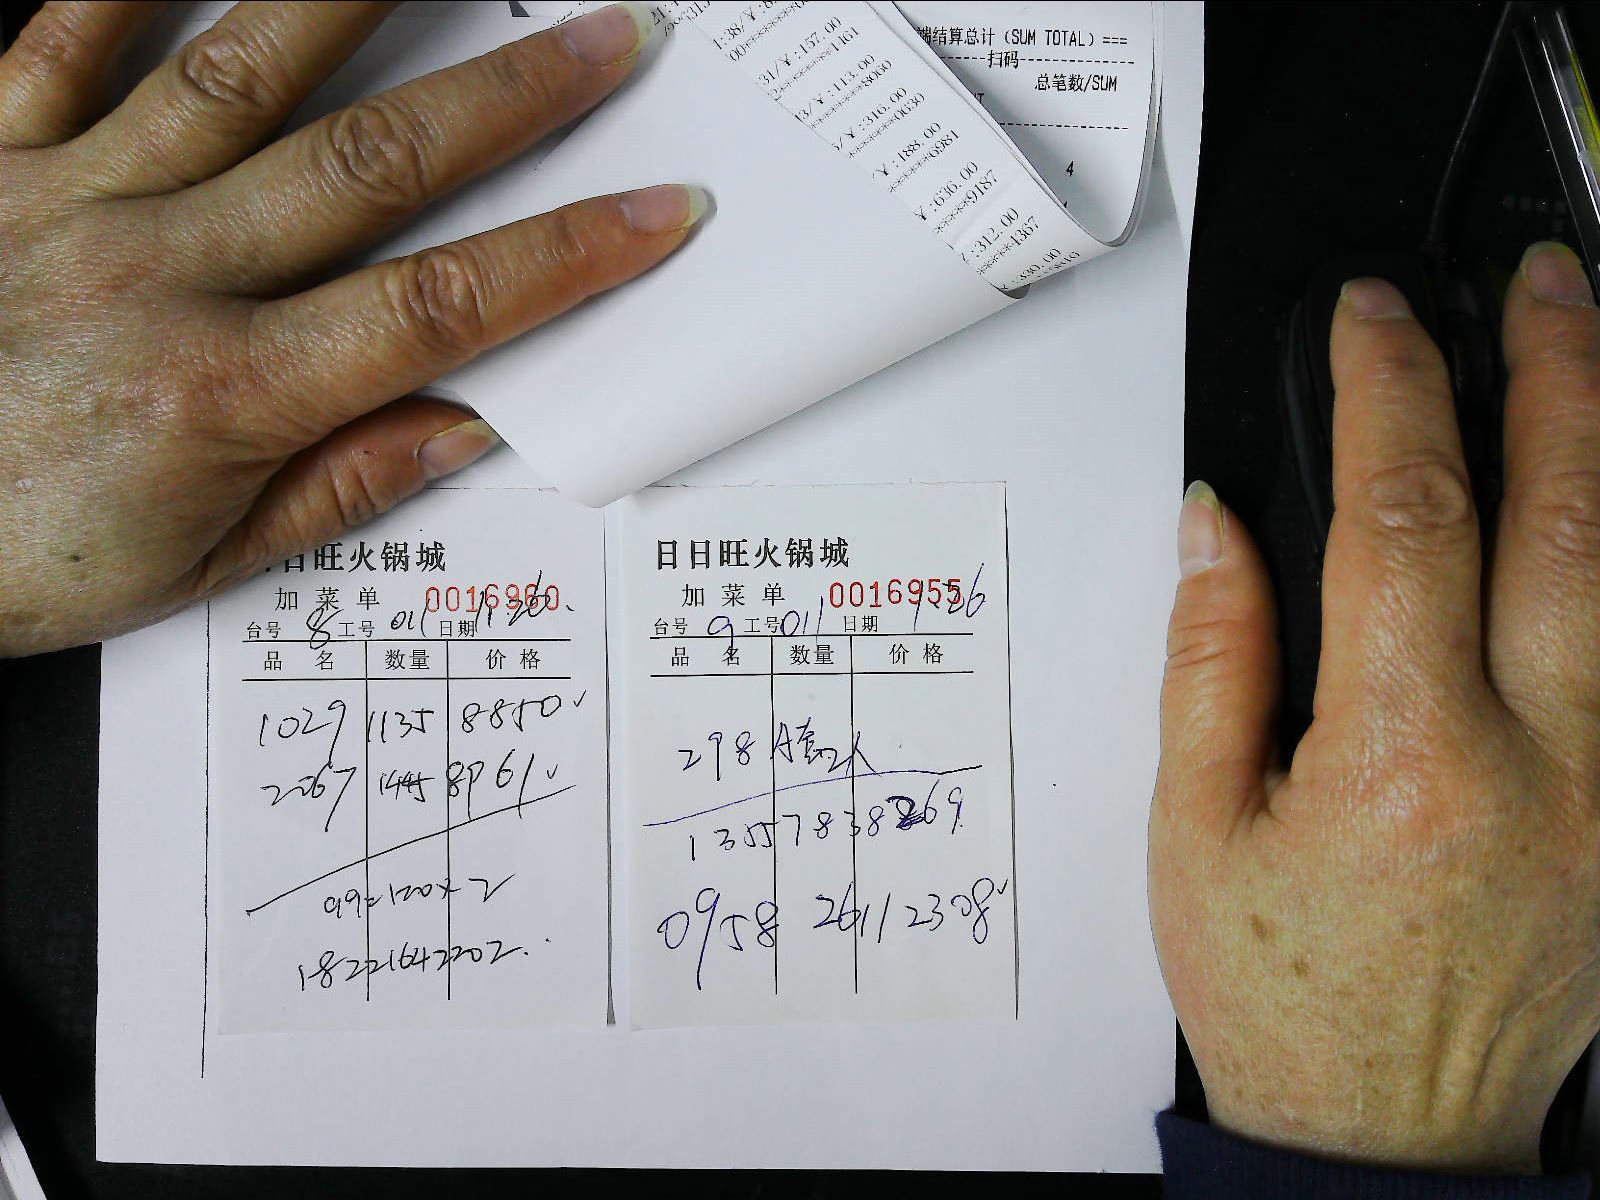 1:38/¥:8
31/¥:157.00
1161
3/¥:113.00
********8060
/¥:316.00
*******0630
¥:188.00
******6981
¥:636.00
*****9187
¥:312.00
*****4367
330.00
端结算总计（SUM TOTAL）===
扫码
总笔数/SUM
4
日旺火锅城
加菜单 0016960
台号 8 工号 011 日期 11.26.
品名 数量 价格
1029 1135 8850✓
2067 1445 8961✓
99=120×2
18221642202.
日日旺火锅城
加菜单 0016955
台号 9 工号 011 日期 11.26
品名 数量 价格
298 A套 2人
13557838269
0958 2611 2308✓